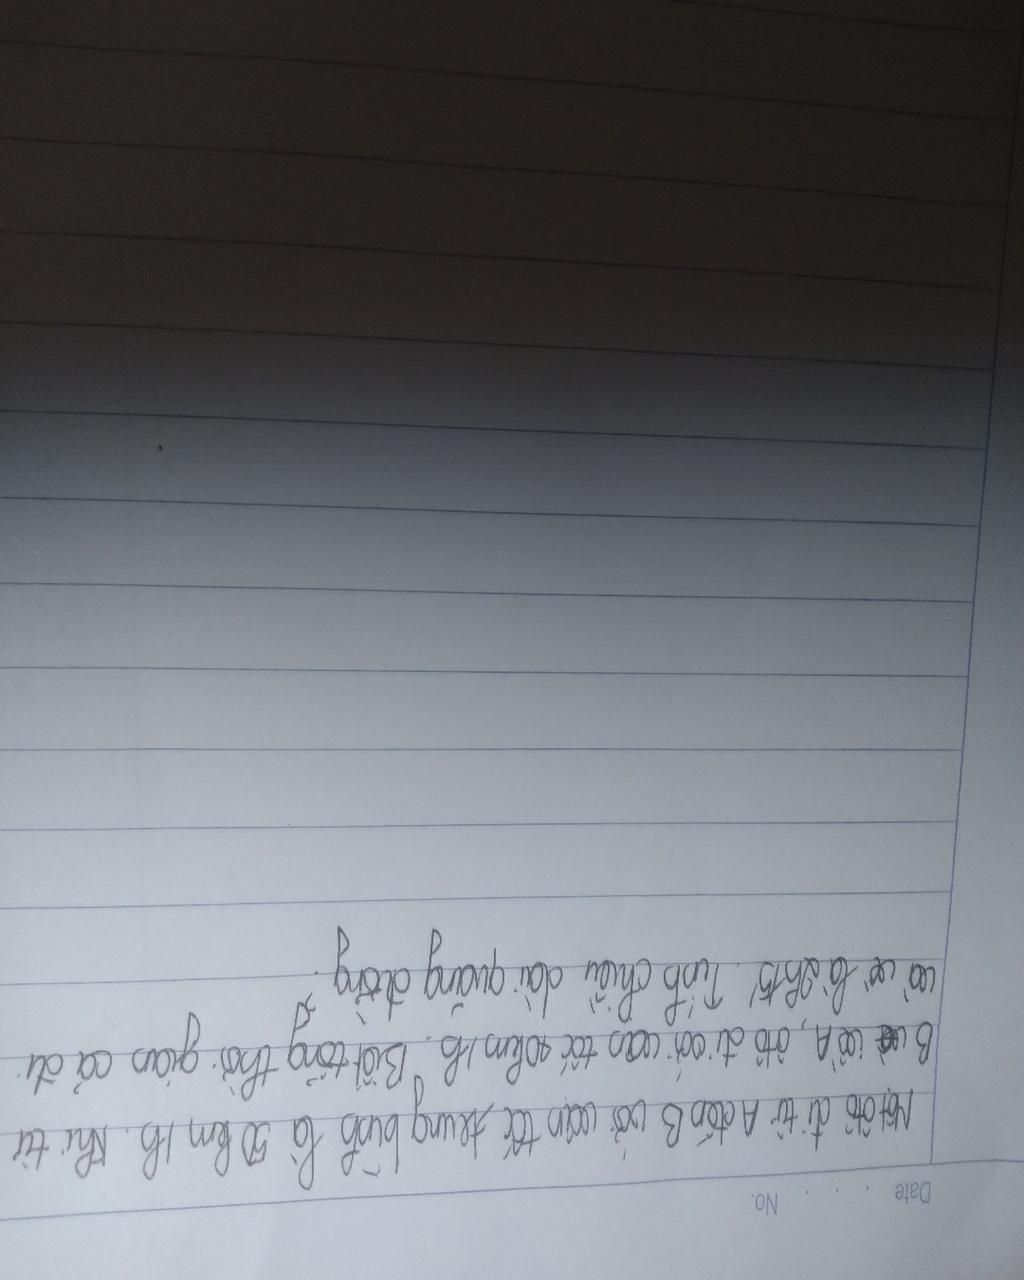 Date . . . . No.
Một ôtô đi từ A đến B với vận tốc trung bình là 50 km/h. Khi từ
B về A, ôtô đi với vận tốc 40km/h. Biết tổng thời gian cả đi
và về là 2h15'. Tính chiều dài quãng đường.